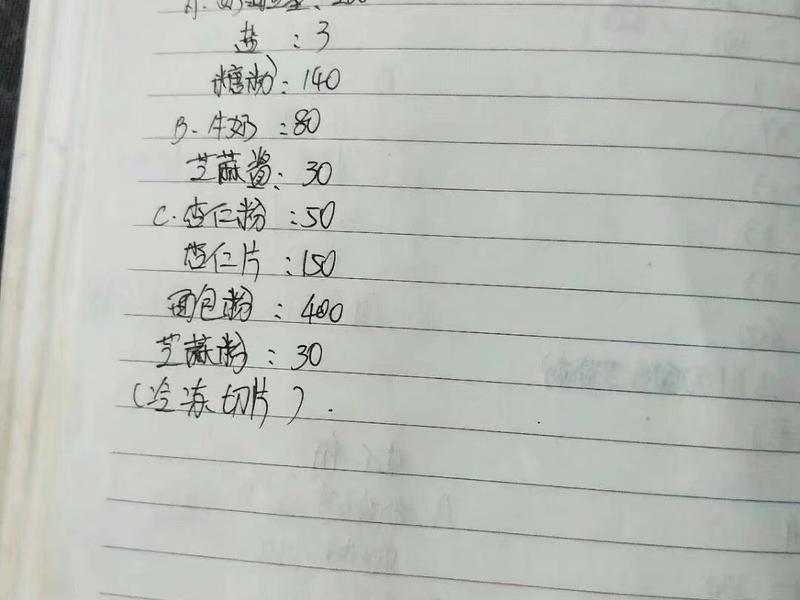 盐：3
糖粉：140
B.牛奶：80
芝麻酱：30
C.杏仁粉：50
杏仁片：150
面包粉：400
芝麻粉：30
（冷冻切片）.